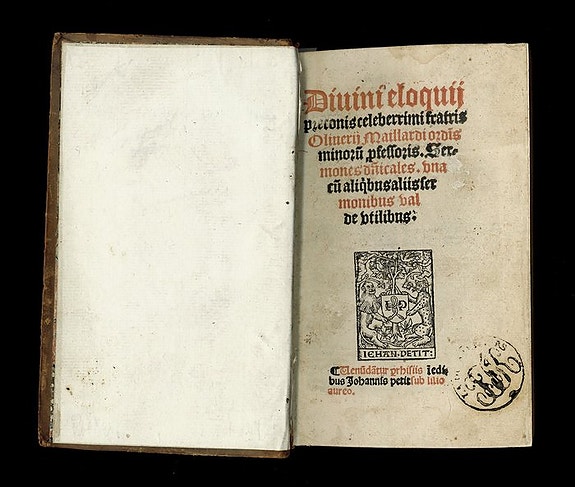 Diuini eloquij
preconis celeberrimi fratris
Oliuerij Maillardi ordīs
minorū ꝓfessoris. Ser-
mones dn̄icales. vna
cū aliq̄bus aliis ser
monibus val
de vtilibus:
IEHAN·PETIT:
¶Uenūdātur prhisiis ī edi-
bus Johannis petit sub lilio
aureo.